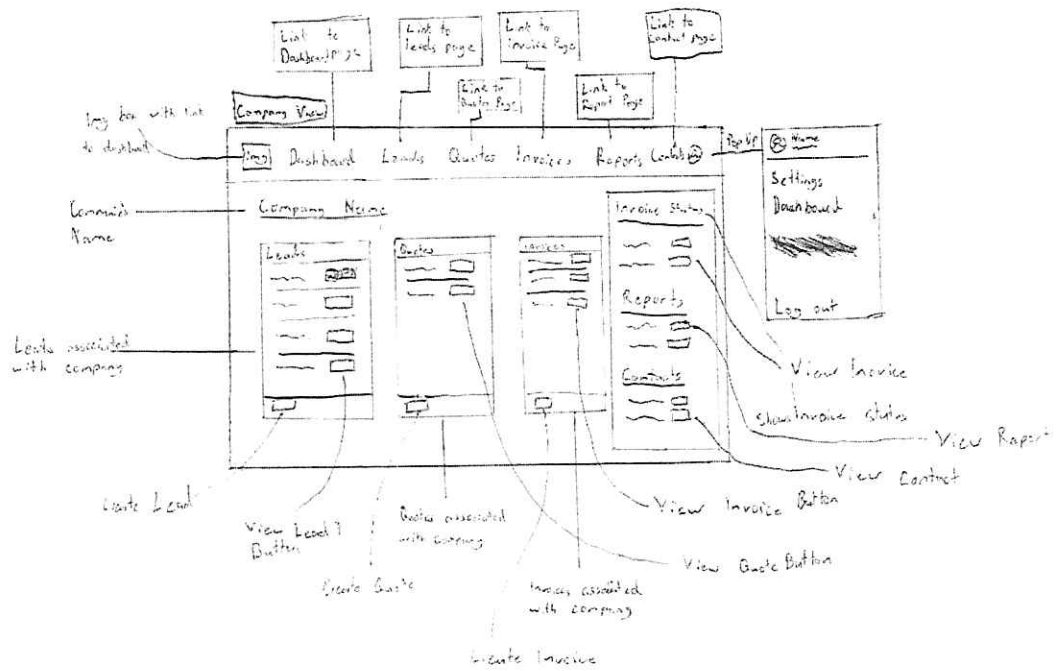 Link to
Dashboard page
Link to
leads page
Link to
invoice Page
Link to
Contact page
Link to
Quotes Page
Link to
Report Page
Company View
Img box with link
to dashboard
Img
Dashboard
Leads
Quotes
Invoices
Reports
Contacts
Pop Up
Name
Settings
Dashboard
Log out
Company Name
Name
Leads
Quotes
Invoices
Invoice Status
Reports
Contacts
Leads associated
with company
View Invoice
Shows Invoice Status
View Report
View Contact
Create Lead
View Lead
Button
Quotes associated
with company
View Invoice Button
View Quote Button
Create Quote
Invoices associated
with company
Create Invoice